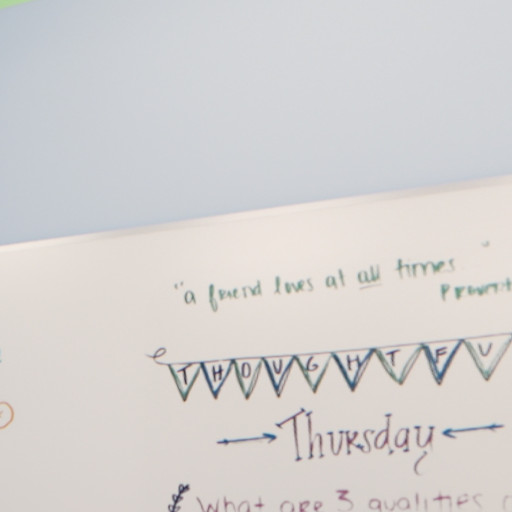 "a friend loves at all times"
THOUGHTFU
Thursday
What are 3 qualities